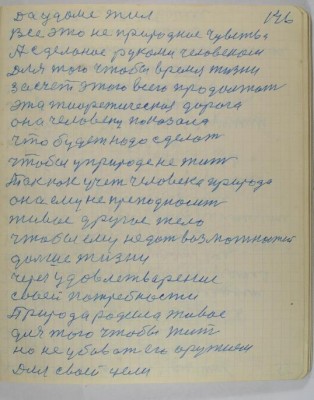 146
Да удоме жил
Все это не природние чувства
А сделаное руками человеком
Для того чтобы время жизни
За счет этого всего продолжат
Эта теоретическая дорога
она человеку показала
что будет надо сделат
чтобы уприроде не жит
Так как учет человека природа
она ему не преподносит
живие другое тело
чтобы ему недат возможностей
долше жизни
через удовлетварение
своей потребности
Природа родила живое
для того чтобы жит
но не убиват его оружием
Для своей цели